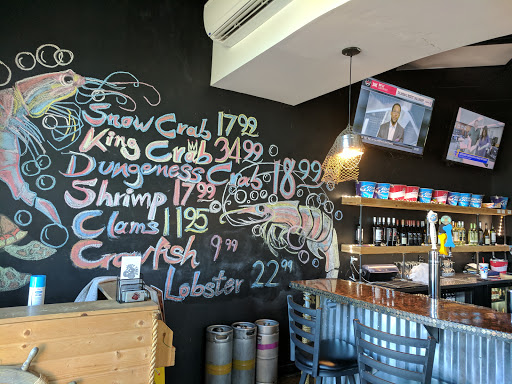 Snow Crab 17 99
King Crab 34.99
Dungeness Crab 18.99
Shrimp 17.99
Clams 11 25
Crayfish 9.99
Lobster 22.99